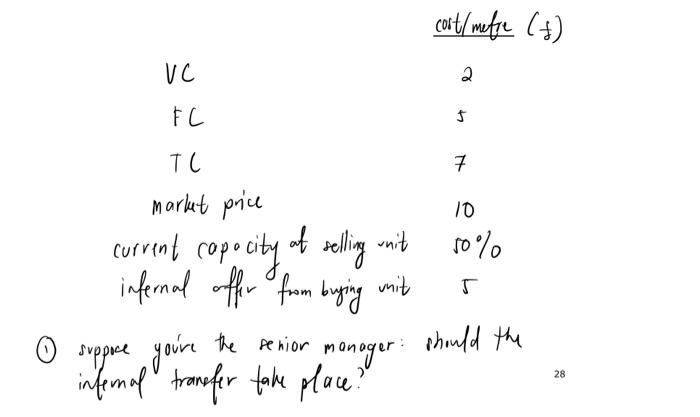 cost/metre (£)
VC 2
FC 5
TC 7
market price 10
current capacity at selling unit 50%
internal offer from buying unit 5
① suppose you're the senior manager: should the
internal transfer take place?
28